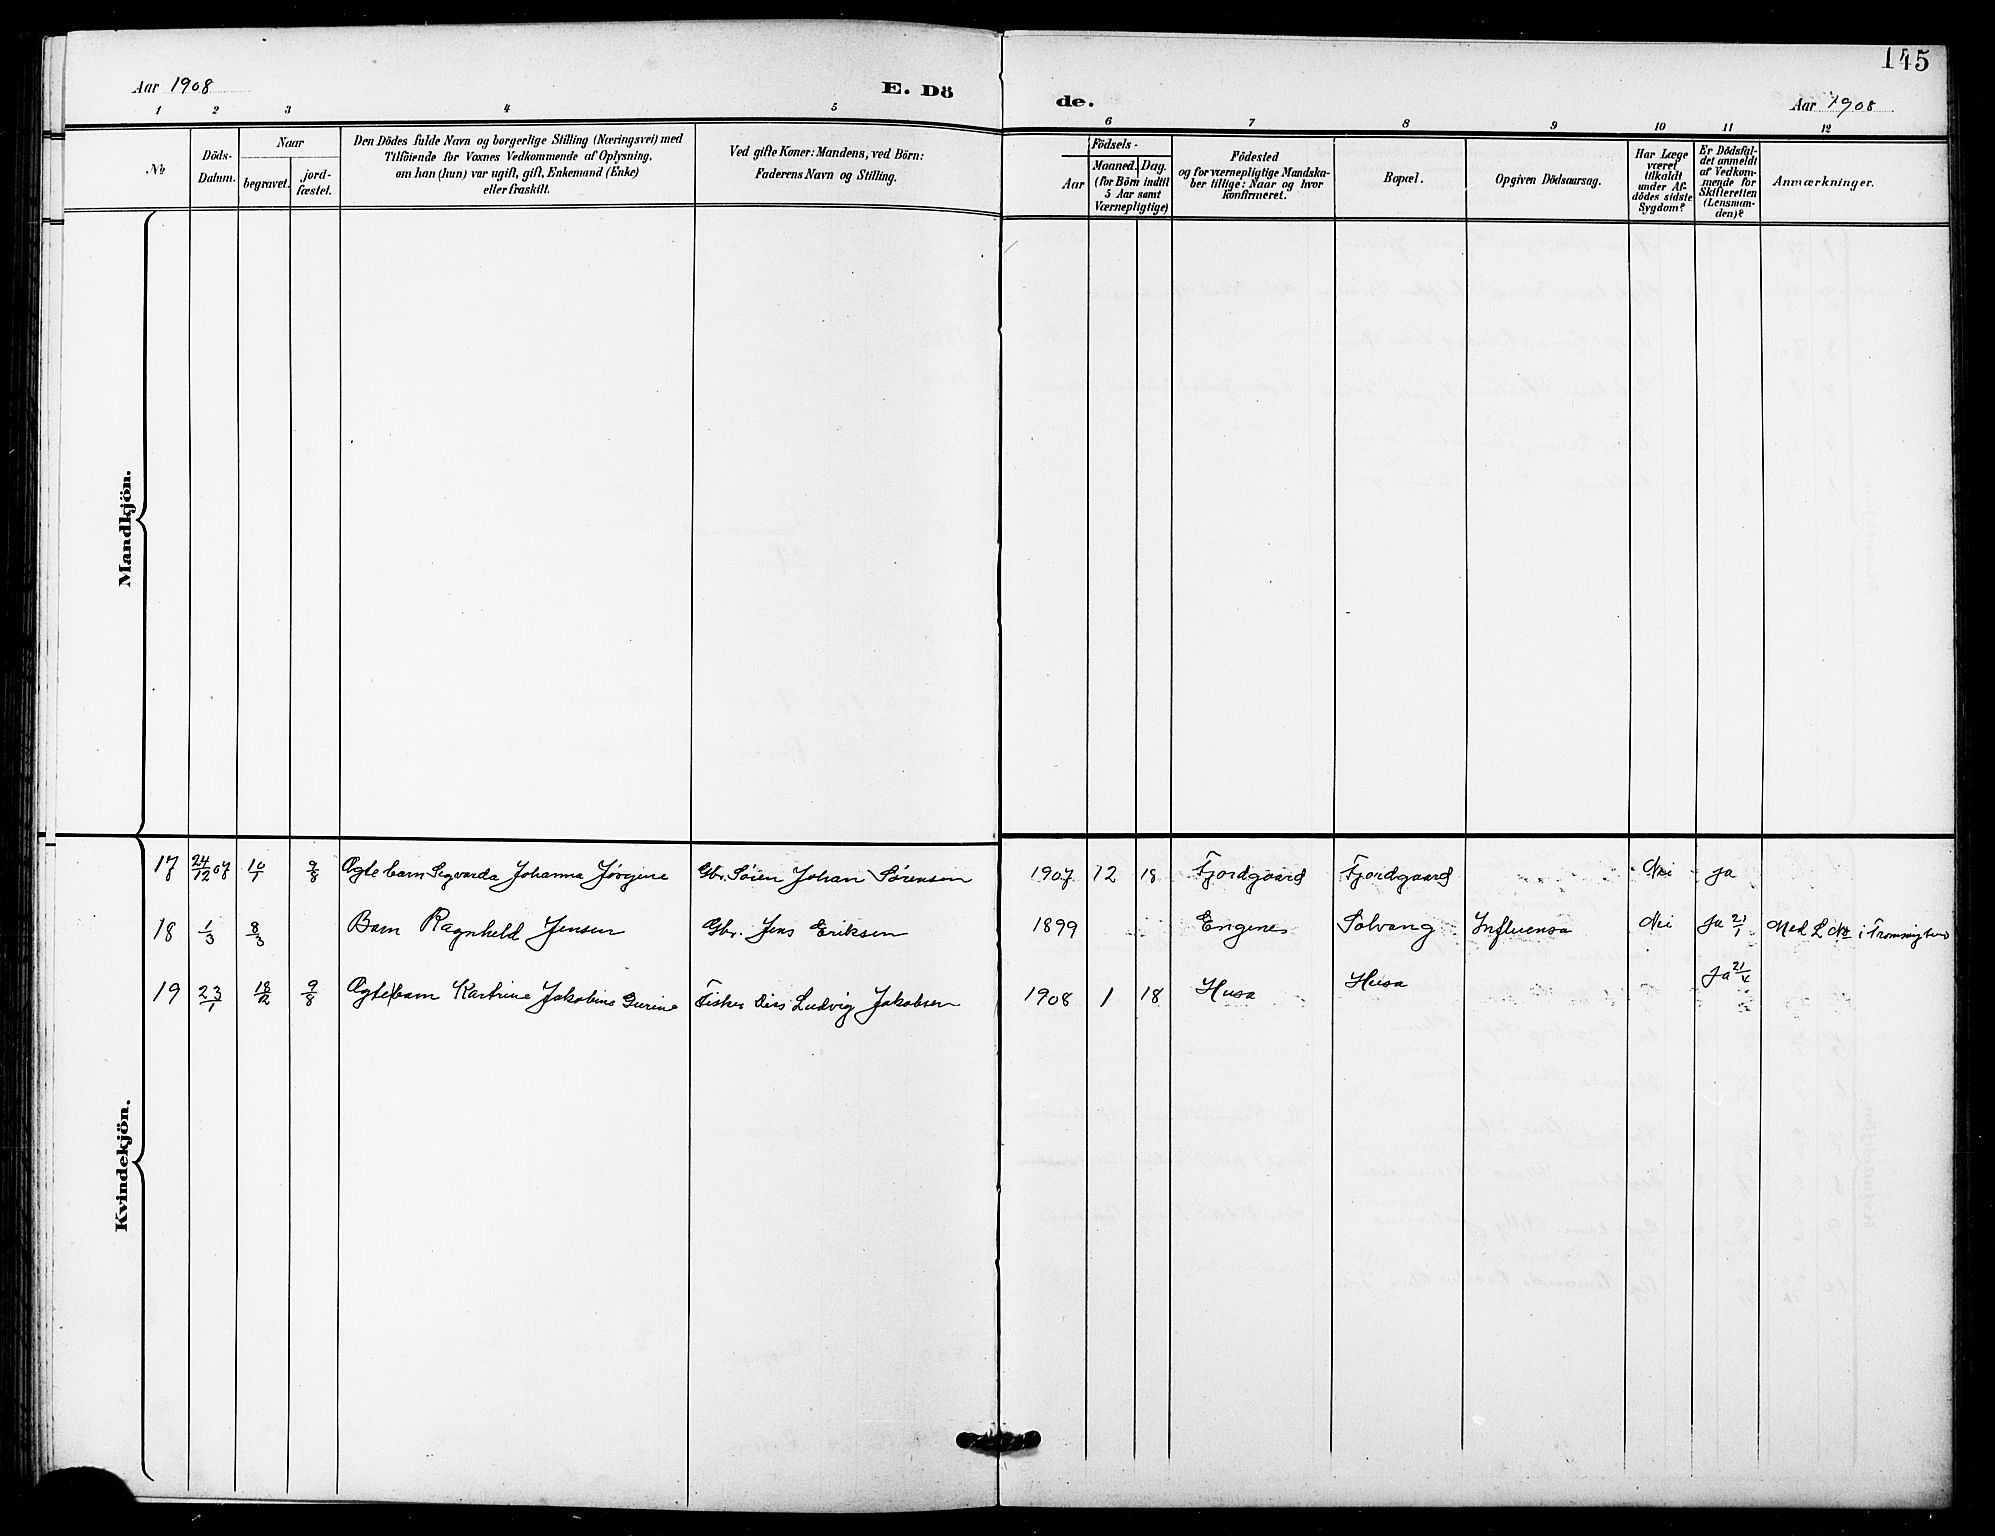 145
Aar 1908
E. Dö
de.
Aar 1908
1 2 3 4 5 6 7 8 9 10 11 12
№
Döds-
Datum.
Naar
begravet.
jord-
fæstet.
Den Dödes fulde Navn og borgerlige Stilling (Næringsvei) med
Tilföiende for Voxnes Vedkommende af Oplysning,
om han (hun) var ugift, gift, Enkemand (Enke)
eller fraskilt.
Ved gifte Koner: Mandens, ved Börn:
Faderens Navn og Stilling.
Födsels-
Aar
Maaned. Dag.
(for Börn indtil
5 Aar samt
Værnepligtige)
Födested
og for værnepligtige Mandska-
ber tillige: Naar og hvor
konfirmeret.
Bopæl.
Opgiven Dödsaarsag.
Har Læge
været
tilkaldt
under Af-
dödes sidste
Sygdom?
Er Dödsfal-
det anmeldt
af Vedkom-
mende for
Skifteretten
(Lensman-
den)?
Anmærkninger.
Mandkjön.
Kvindekjön.
17 24/12 07 10/1 9/8 Ægte barn Segvarda Johanna Jørgine Gbr. Sören Johan Sörensen 1907 12 18 Fjordgaard Fjordgaard Nei Ja
18 1/3 8/3 Barn Ragnheld Jensen Gbr. Jens Eriksen 1899 Engenes Solvang Influensa Nei Ja 21/1 Med L No i
19 23/1 18/2 9/8 Ægte barn Kartrine Jakobine Gurine Fisker Ludvig Jakobsen 1908 1 18 Husa Husa Ja 21/4